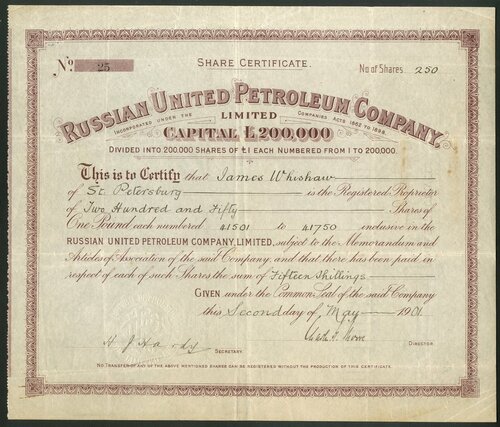 SHARE CERTIFICATE.
No 25
No of Shares 250
RUSSIAN UNITED PETROLEUM COMPANY,
INCORPORATED UNDER THE COMPANIES ACTS 1862 TO 1898.
LIMITED
CAPITAL £200,000
DIVIDED INTO 200,000 SHARES OF £1 EACH NUMBERED FROM 1 TO 200,000.
This is to Certify that James Whishaw
of St. Petersburg is the Registered Proprietor
of Two Hundred and Fifty Shares of
One Pound each numbered 41501 to 41750 inclusive in the
RUSSIAN UNITED PETROLEUM COMPANY, LIMITED, subject to the Memorandum and
Articles of Association of the said Company: and that there has been paid in
respect of each of such Shares the sum of Fifteen Shillings
GIVEN under the Common Seal of the said Company
this Second day of May 1901.
H. J. Hardy SECRETARY
DIRECTOR
NO TRANSFER OF ANY OF THE ABOVE MENTIONED SHARES CAN BE REGISTERED WITHOUT THE PRODUCTION OF THIS CERTIFICATE.